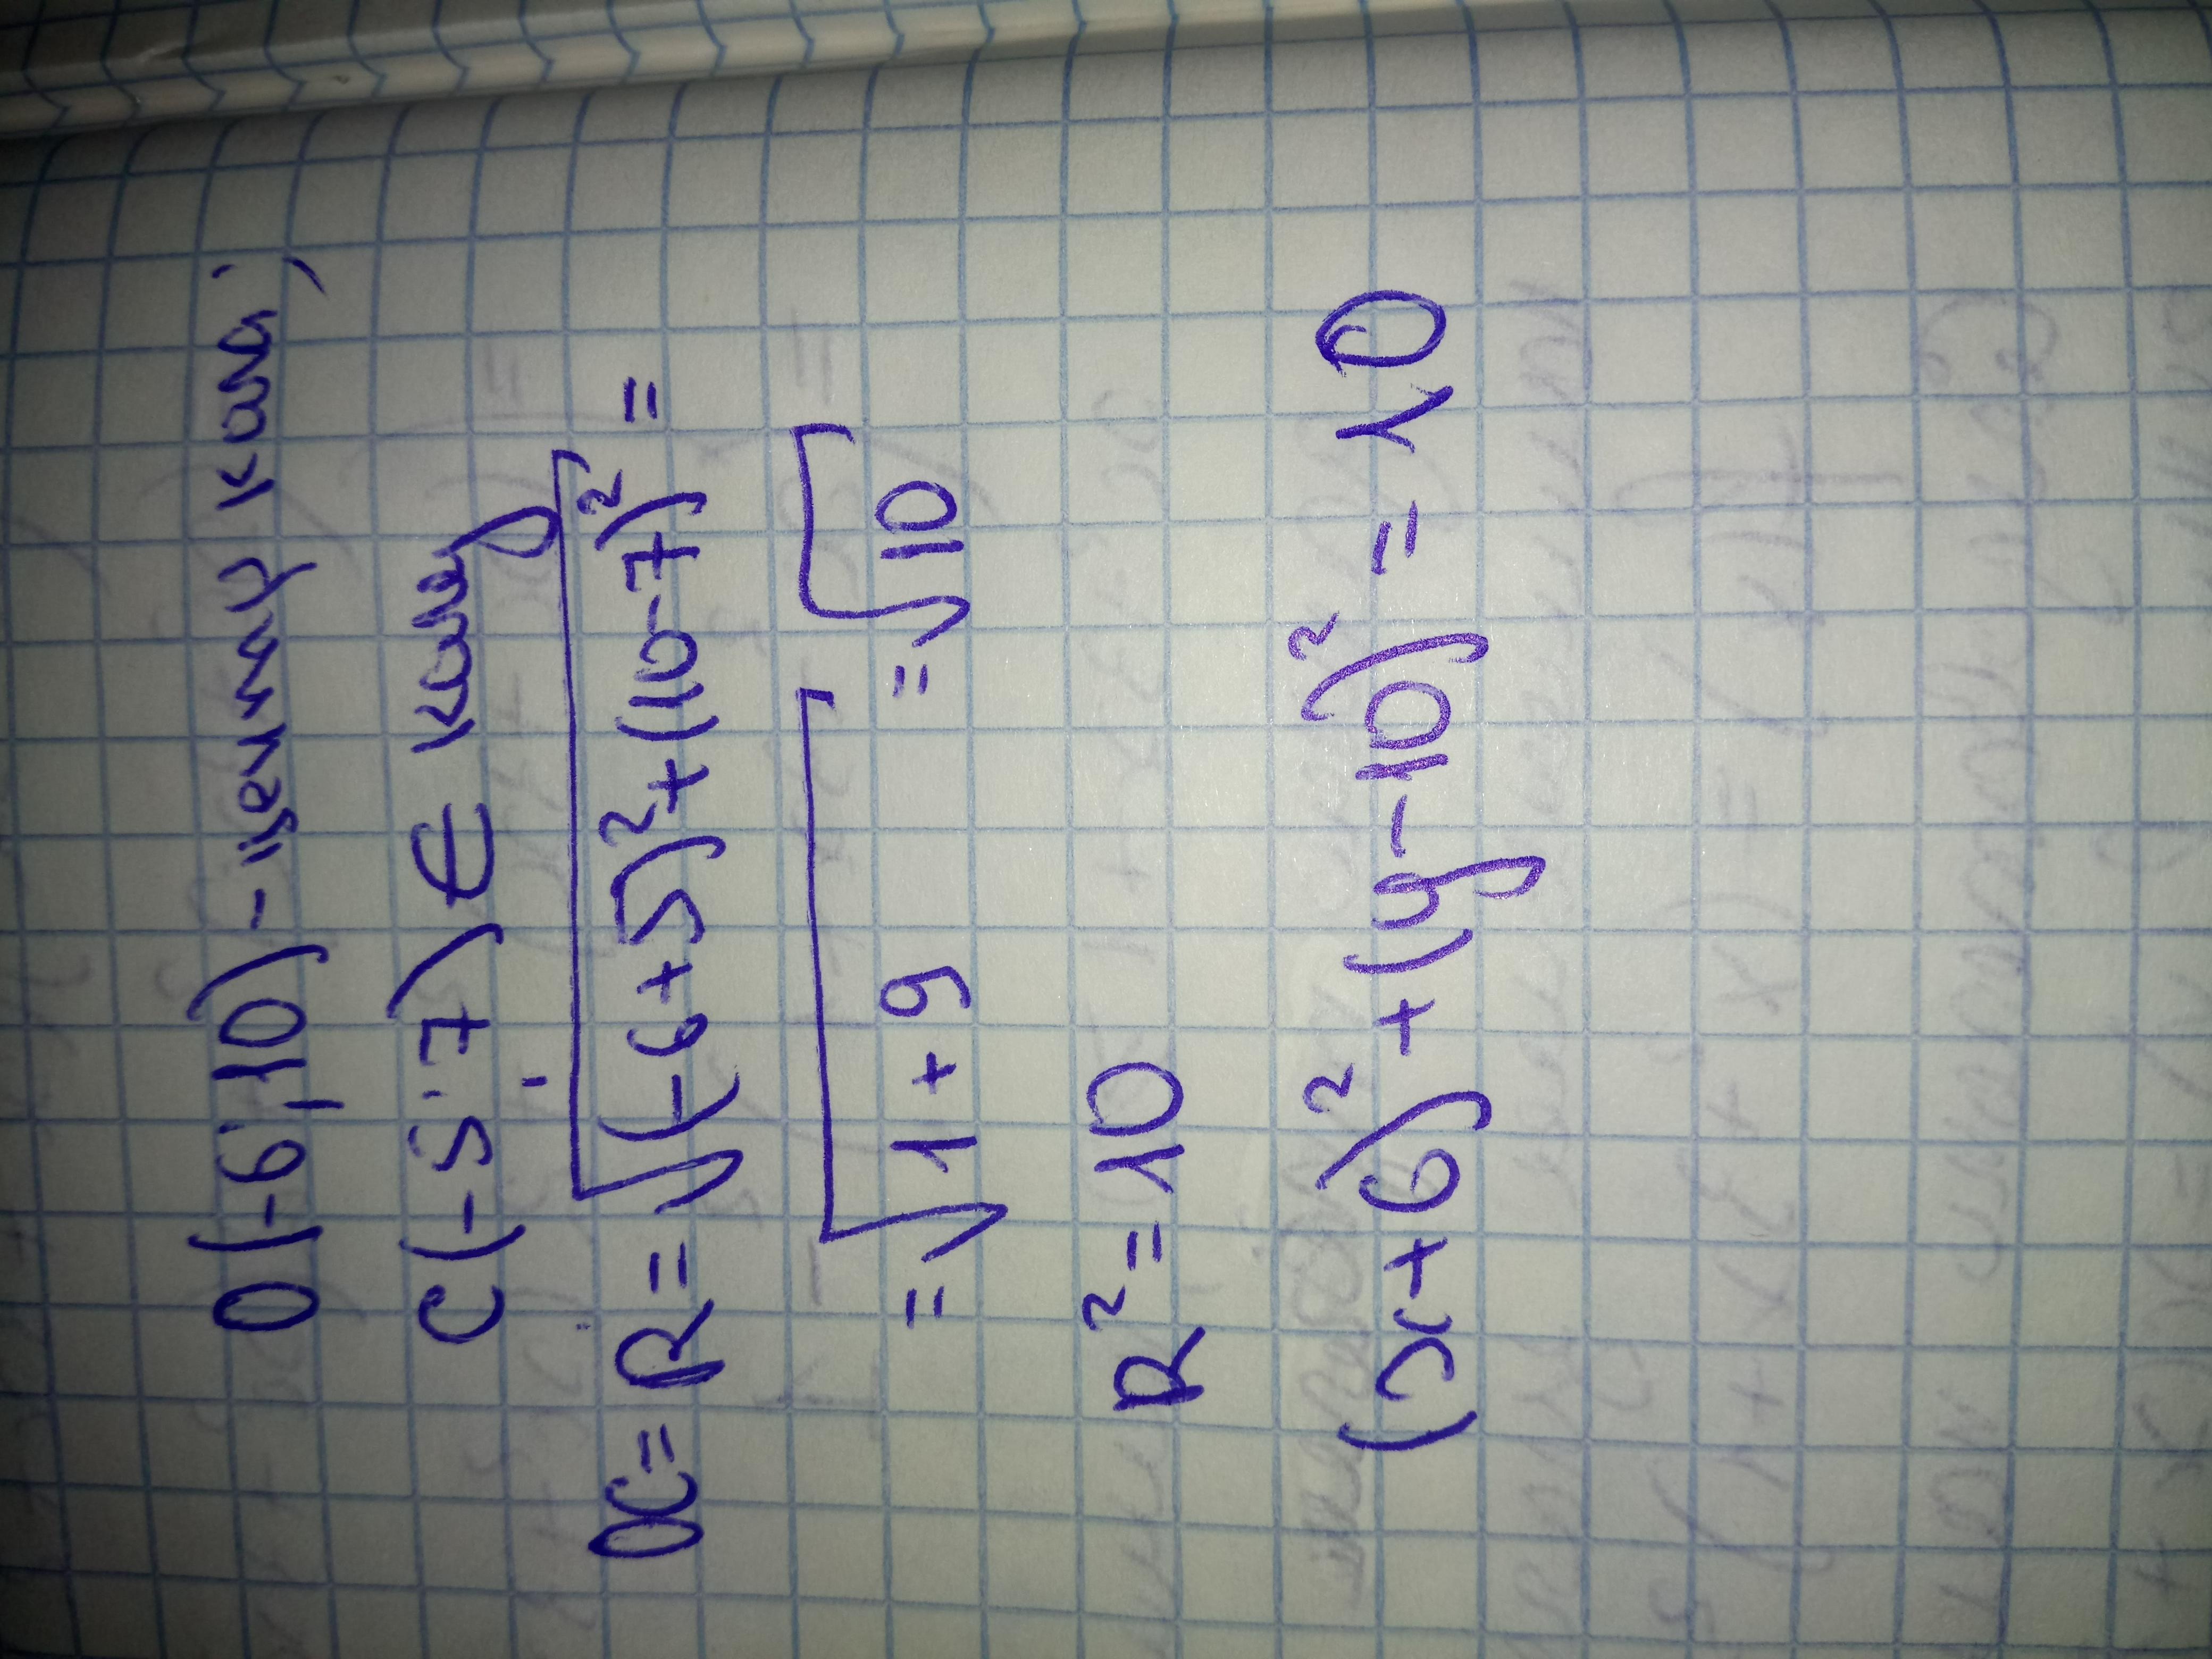 O(-6;10) - центр кола,
C(-5;7) ∈ колу
OC = R = √((-6+5)²+(10-7)²) =
= √(1+9) = √10
R² = 10
(x+6)² + (y-10)² = 10